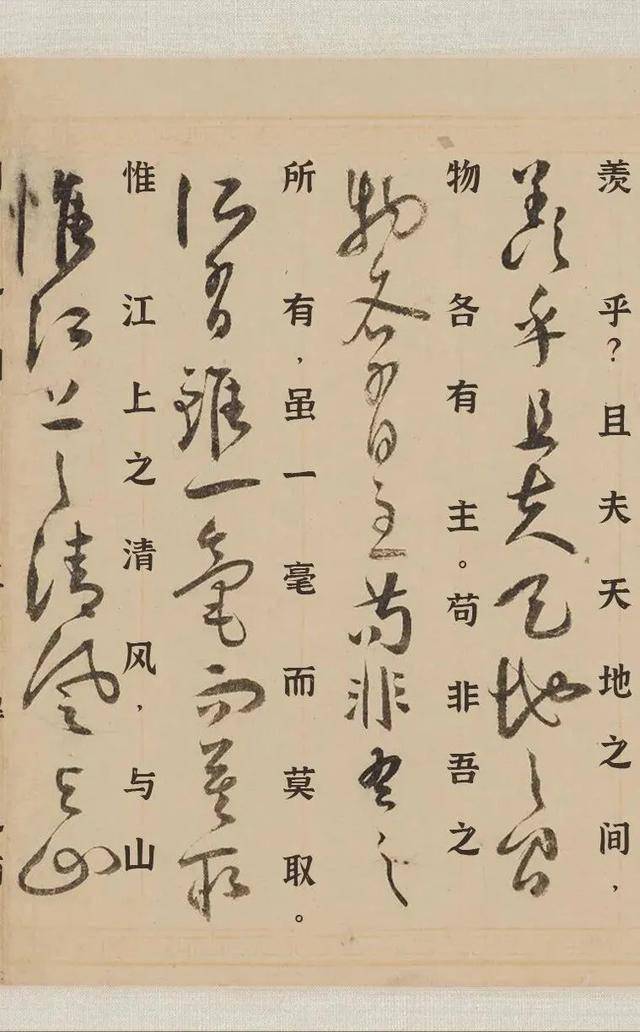 羡乎？且夫天地之间，
羨乎且夫天地之間
物各有主。苟非吾之
物各有主苟非吾之
所有，虽一毫而莫取。
所有雖一毫而莫取
惟江上之清风，与山
惟江上之清風与山